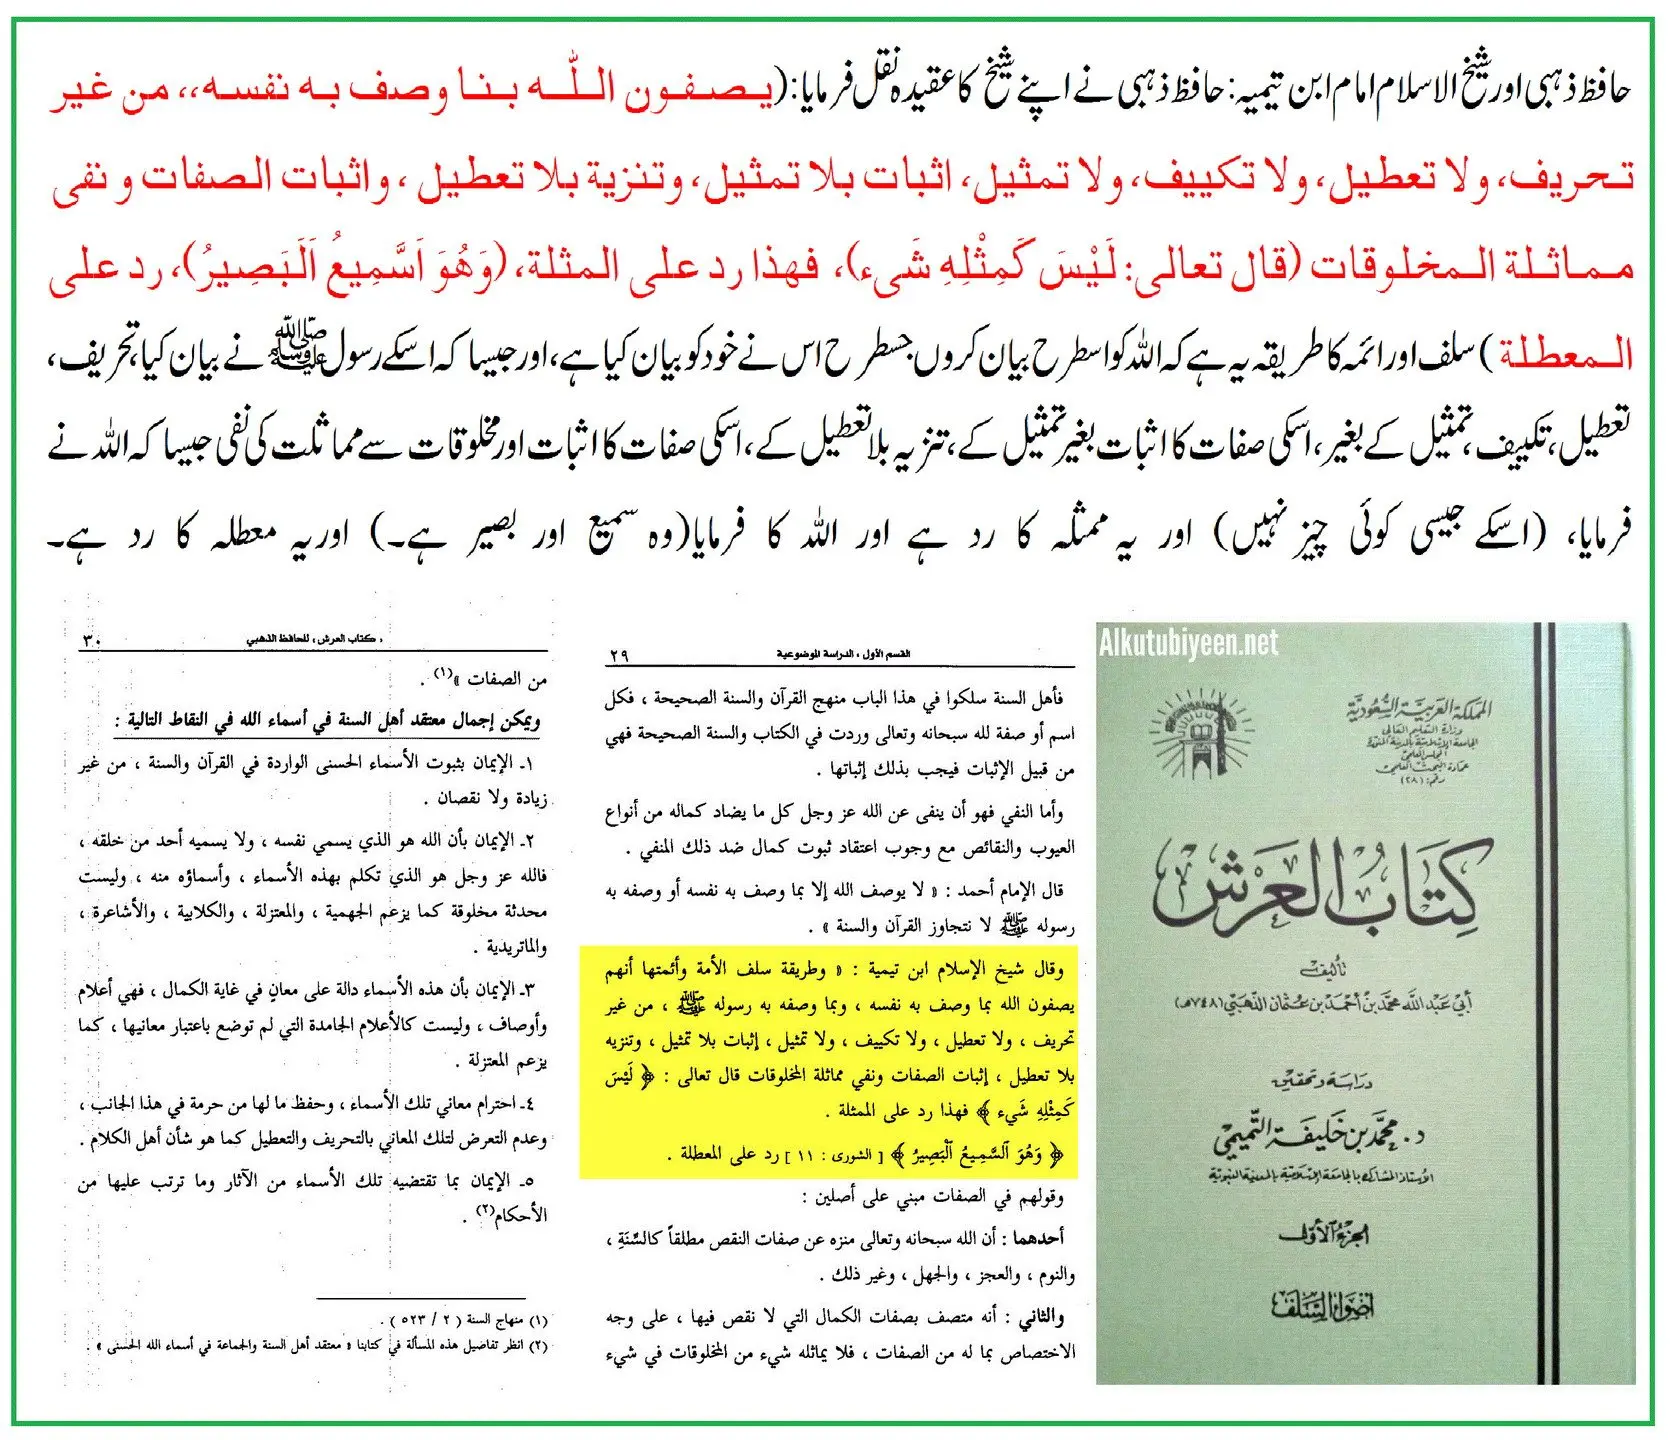 حافظ ذہبی اور شیخ الاسلام امام ابن تیمیہ: حافظ ذہبی نے اپنے شیخ کا عقیدہ نقل فرمایا: (يصفون اللّٰه بنا وصف به نفسه،، من غير
تحريف، ولا تعطيل، ولا تكييف، ولا تمثيل، اثبات بلا تمثيل، وتنزية بلا تعطيل ، واثبات الصفات و نفى
مماثلة المخلوقات (قال تعالى: لَيْسَ كَمِثْلِهِ شَىء)، فهذا رد على المثلة، (وَهُوَ اَسَّمِيعُ اَلَبَصِيرُ)، رد على
المعطلة) سلف اور ائمہ کا طریقہ یہ ہے کہ اللہ کو اسطرح بیان کروں جسطرح اس نے خود کو بیان کیا ہے، اور جیسا کہ اسکے رسول ﷺ نے بیان کیا، تحریف،
تعطیل، تکییف، تمثیل کے بغیر، اسکی صفات کا اثبات بغیر تمثیل کے، تنزیہ بلا تعطیل کے، اسکی صفات کا اثبات اور مخلوقات سے مماثلت کی نفی جیسا کہ اللہ نے
فرمایا، (اسکے جیسی کوئی چیز نہیں) اور یہ ممثلہ کا رد ہے اور اللہ کا فرمایا (وہ سمیع اور بصیر ہے۔) اور یہ معطلہ کا رد ہے۔
Alkutubiyeen.net
المملكة العربية السعودية
وزارة التعليم العالي
الجامعة الإسلامية بالمدينة المنورة
المجلس العلمي
عمادة البحث العلمي
رقم: (٢٨)
كتاب العرش
تأليف
أبي عبد الله محمد بن أحمد بن عثمان الذهبي (٧٤٨هـ)
دراسة وتحقيق
د. محمد بن خليفة التميمي
الأستاذ المشارك بالجامعة الإسلامية بالمدينة النبوية
الجزء الأول
أضواء السلف
القسم الأول ، الدراسة الموضوعية ٢٩
فأهل السنة سلكوا في هذا الباب منهج القرآن والسنة الصحيحة ، فكل
اسم أو صفة لله سبحانه وتعالى وردت في الكتاب والسنة الصحيحة فهي
من قبيل الإثبات فيجب بذلك إثباتها .
وأما النفي فهو أن ينفى عن الله عز وجل كل ما يضاد كماله من أنواع
العيوب والنقائص مع وجوب اعتقاد ثبوت كمال ضد ذلك المنفي .
قال الإمام أحمد : « لا يوصف الله إلا بما وصف به نفسه أو وصفه به
رسوله ﷺ لا نتجاوز القرآن والسنة » .
وقال شيخ الإسلام ابن تيمية : « وطريقة سلف الأمة وأئمتها أنهم
يصفون الله بما وصف به نفسه ، وبما وصفه به رسوله ﷺ ، من غير
تحريف ، ولا تعطيل ، ولا تكييف ، ولا تمثيل ، إثبات بلا تمثيل ، وتنزيه
بلا تعطيل ، إثبات الصفات ونفي مماثلة المخلوقات قال تعالى : ﴿ لَيْسَ
كَمِثْلِهِ شَيء ﴾ فهذا رد على الممثلة .
﴿ وَهُوَ ٱلسَّمِيعُ ٱلْبَصِيرُ ﴾ [ الشورى : ١١ ] رد على المعطلة .
وقولهم في الصفات مبني على أصلين :
أحدهما : أن الله سبحانه وتعالى منزه عن صفات النقص مطلقاً كالسِّنَةِ ،
والنوم ، والعجز ، والجهل ، وغير ذلك .
والثاني : أنه متصف بصفات الكمال التي لا نقص فيها ، على وجه
الاختصاص بما له من الصفات ، فلا يماثله شيء من المخلوقات في شيء
، كتاب العرش ، للحافظ الذهبي ٣٠
من الصفات »(١) .
ويمكن إجمال معتقد أهل السنة في أسماء الله في النقاط التالية :
١ـ الإيمان بثبوت الأسماء الحسنى الواردة في القرآن والسنة ، من غير
زيادة ولا نقصان .
٢ـ الإيمان بأن الله هو الذي يسمي نفسه ، ولا يسميه أحد من خلقه ،
فالله عز وجل هو الذي تكلم بهذه الأسماء ، وأسماؤه منه ، وليست
محدثة مخلوقة كما يزعم الجهمية ، والمعتزلة ، والكلابية ، والأشاعرة ،
والماتريدية .
٣ـ الإيمان بأن هذه الأسماء دالة على معانٍ في غاية الكمال ، فهي أعلام
وأوصاف ، وليست كالأعلام الجامدة التي لم توضع باعتبار معانيها ، كما
يزعم المعتزلة .
٤ـ احترام معاني تلك الأسماء ، وحفظ ما لها من حرمة في هذا الجانب ،
وعدم التعرض لتلك المعاني بالتحريف والتعطيل كما هو شأن أهل الكلام .
٥ـ الإيمان بما تقتضيه تلك الأسماء من الآثار وما ترتب عليها من
الأحكام(٢) .
(١) منهاج السنة ( ٢ / ٥٢٣ ) .
(٢) انظر تفاصيل هذه المسألة في كتابنا « معتقد أهل السنة والجماعة في أسماء الله الحسنى » .